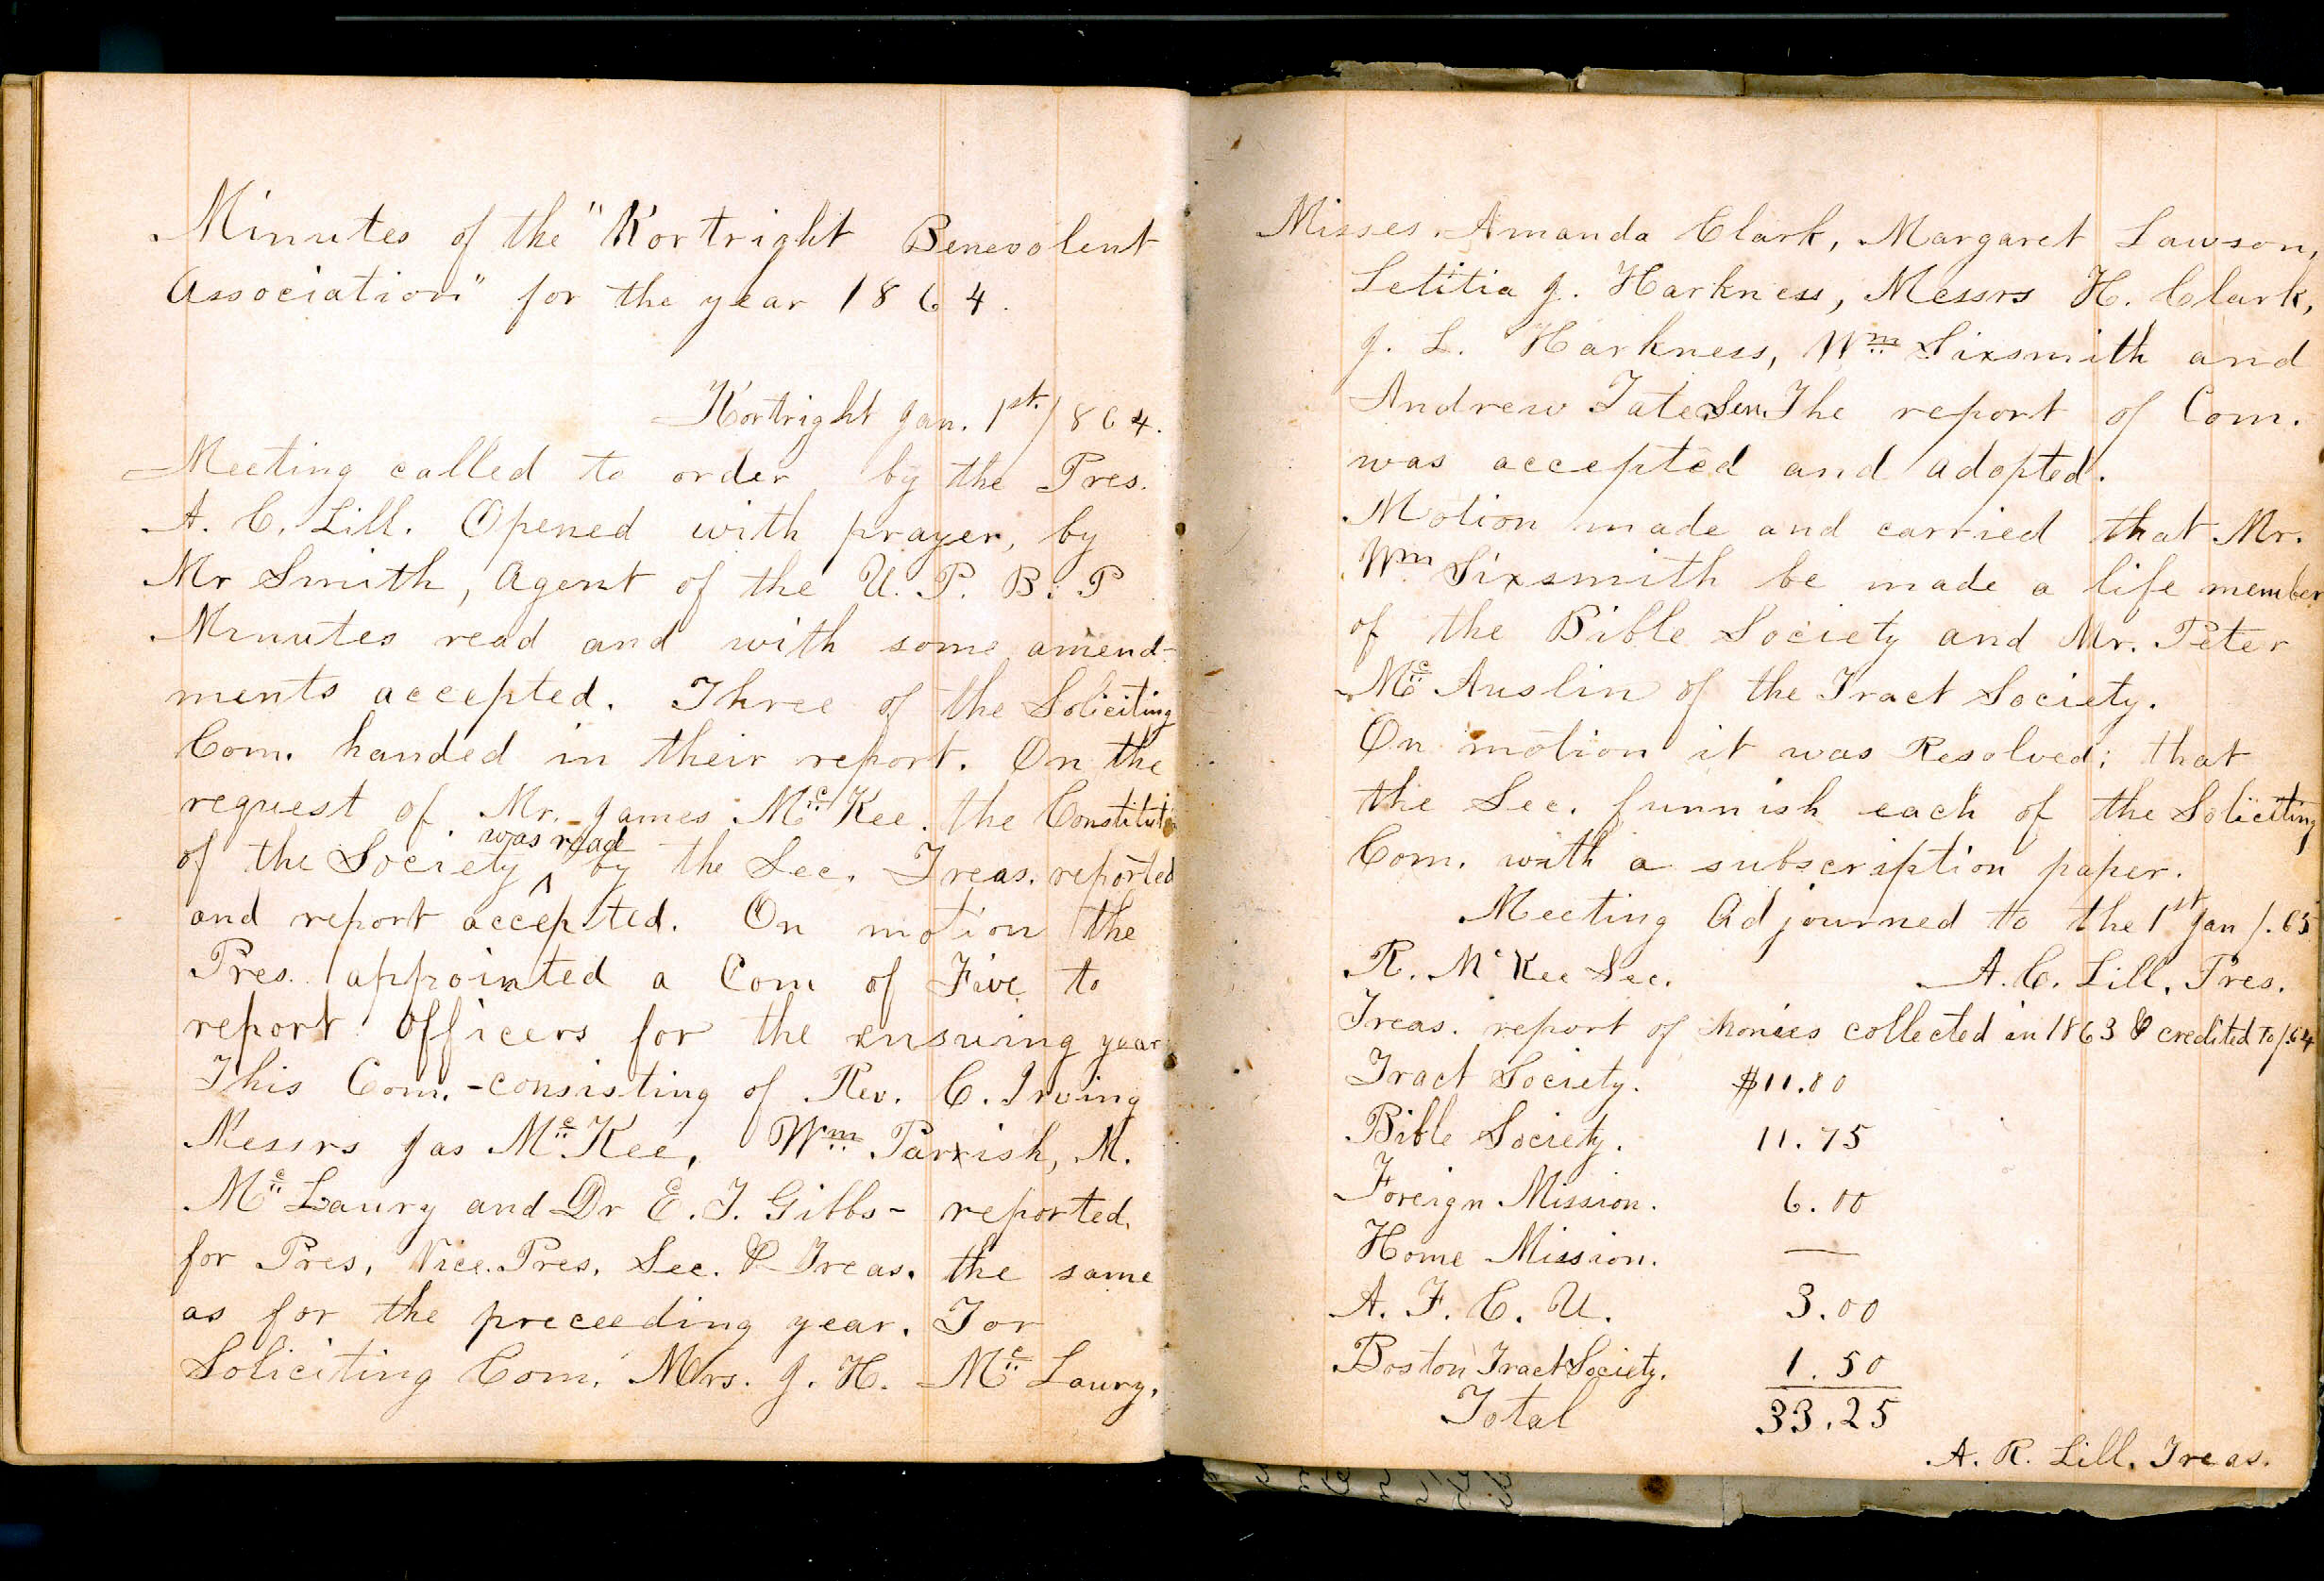 Minutes of the "Kortright Benevolent
Association" for the year 1864.
Kortright Jan. 1st./864.
Meeting called to order by the Pres.
A. C. Lill. Opened with prayer, by
Mr Smith, Agent of the U. P. B. P
Minutes read and with some amend-
ments accepted. Three of the Soliciting
Com. handed in their report. On the
request of Mr. James Mc Kee. the Constitut
of the Society was read by the Sec. Treas. reported
and report accepted. On motion the
Pres. appointed a Com of Five to
report Officers for the ensuing year
This Com. - consisting of Rev. C. Irving
Messrs Jas Mc Kee, Wm Parrish, M.
Mc Laury and Dr E. T. Gibbs - reported,
for Pres, Vice. Pres, Sec. & Treas. the same
as for the preceeding year. For
Soliciting Com. Mrs. J. H. Mc Laury,
Misses Amanda Clark, Margaret Lawson,
Letitia J. Harkness, Messrs H. Clark,
J. L. Harkness, Wm Sixsmith and
Andrew Tate Sen. The report of Com.
was accepted and adopted.
Motion made and carried that Mr.
Wm Sixsmith be made a life member
of the Bible Society and Mr. Peter
Mc Auslin of the Tract Society.
On motion it was Resolved; that
the Sec. funnish each of the Soliciting
Com. with a subscription paper.
Meeting Adjourned to the 1st Jan /.65
R. Mc Kee Sec. A. C. Lill, Pres.
Treas. report of monies collected in 1863 & credited to /.64
Tract Society. $11.00
Bible Society. 11.75
Foreign Mission. 6.00
Home Mission. —
A. F. C. U. 3.00
Boston Tract Society. 1.50
Total 33.25
A. R. Lill, Treas.